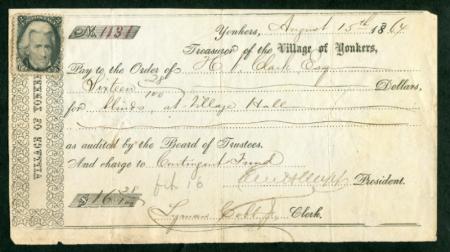 No. 1131
Yonkers, August 15th 1864
Treasurer of the Village of Yonkers,
Pay to the Order of H. Clark Esq
Sixteen 28/100 Dollars,
for blinds, at Village Hall
as audited by the Board of Trustees.
And charge to Contingent Fund
President.
$16 28/100
Lyman Cobb Jr Clerk.
VILLAGE OF YONKERS